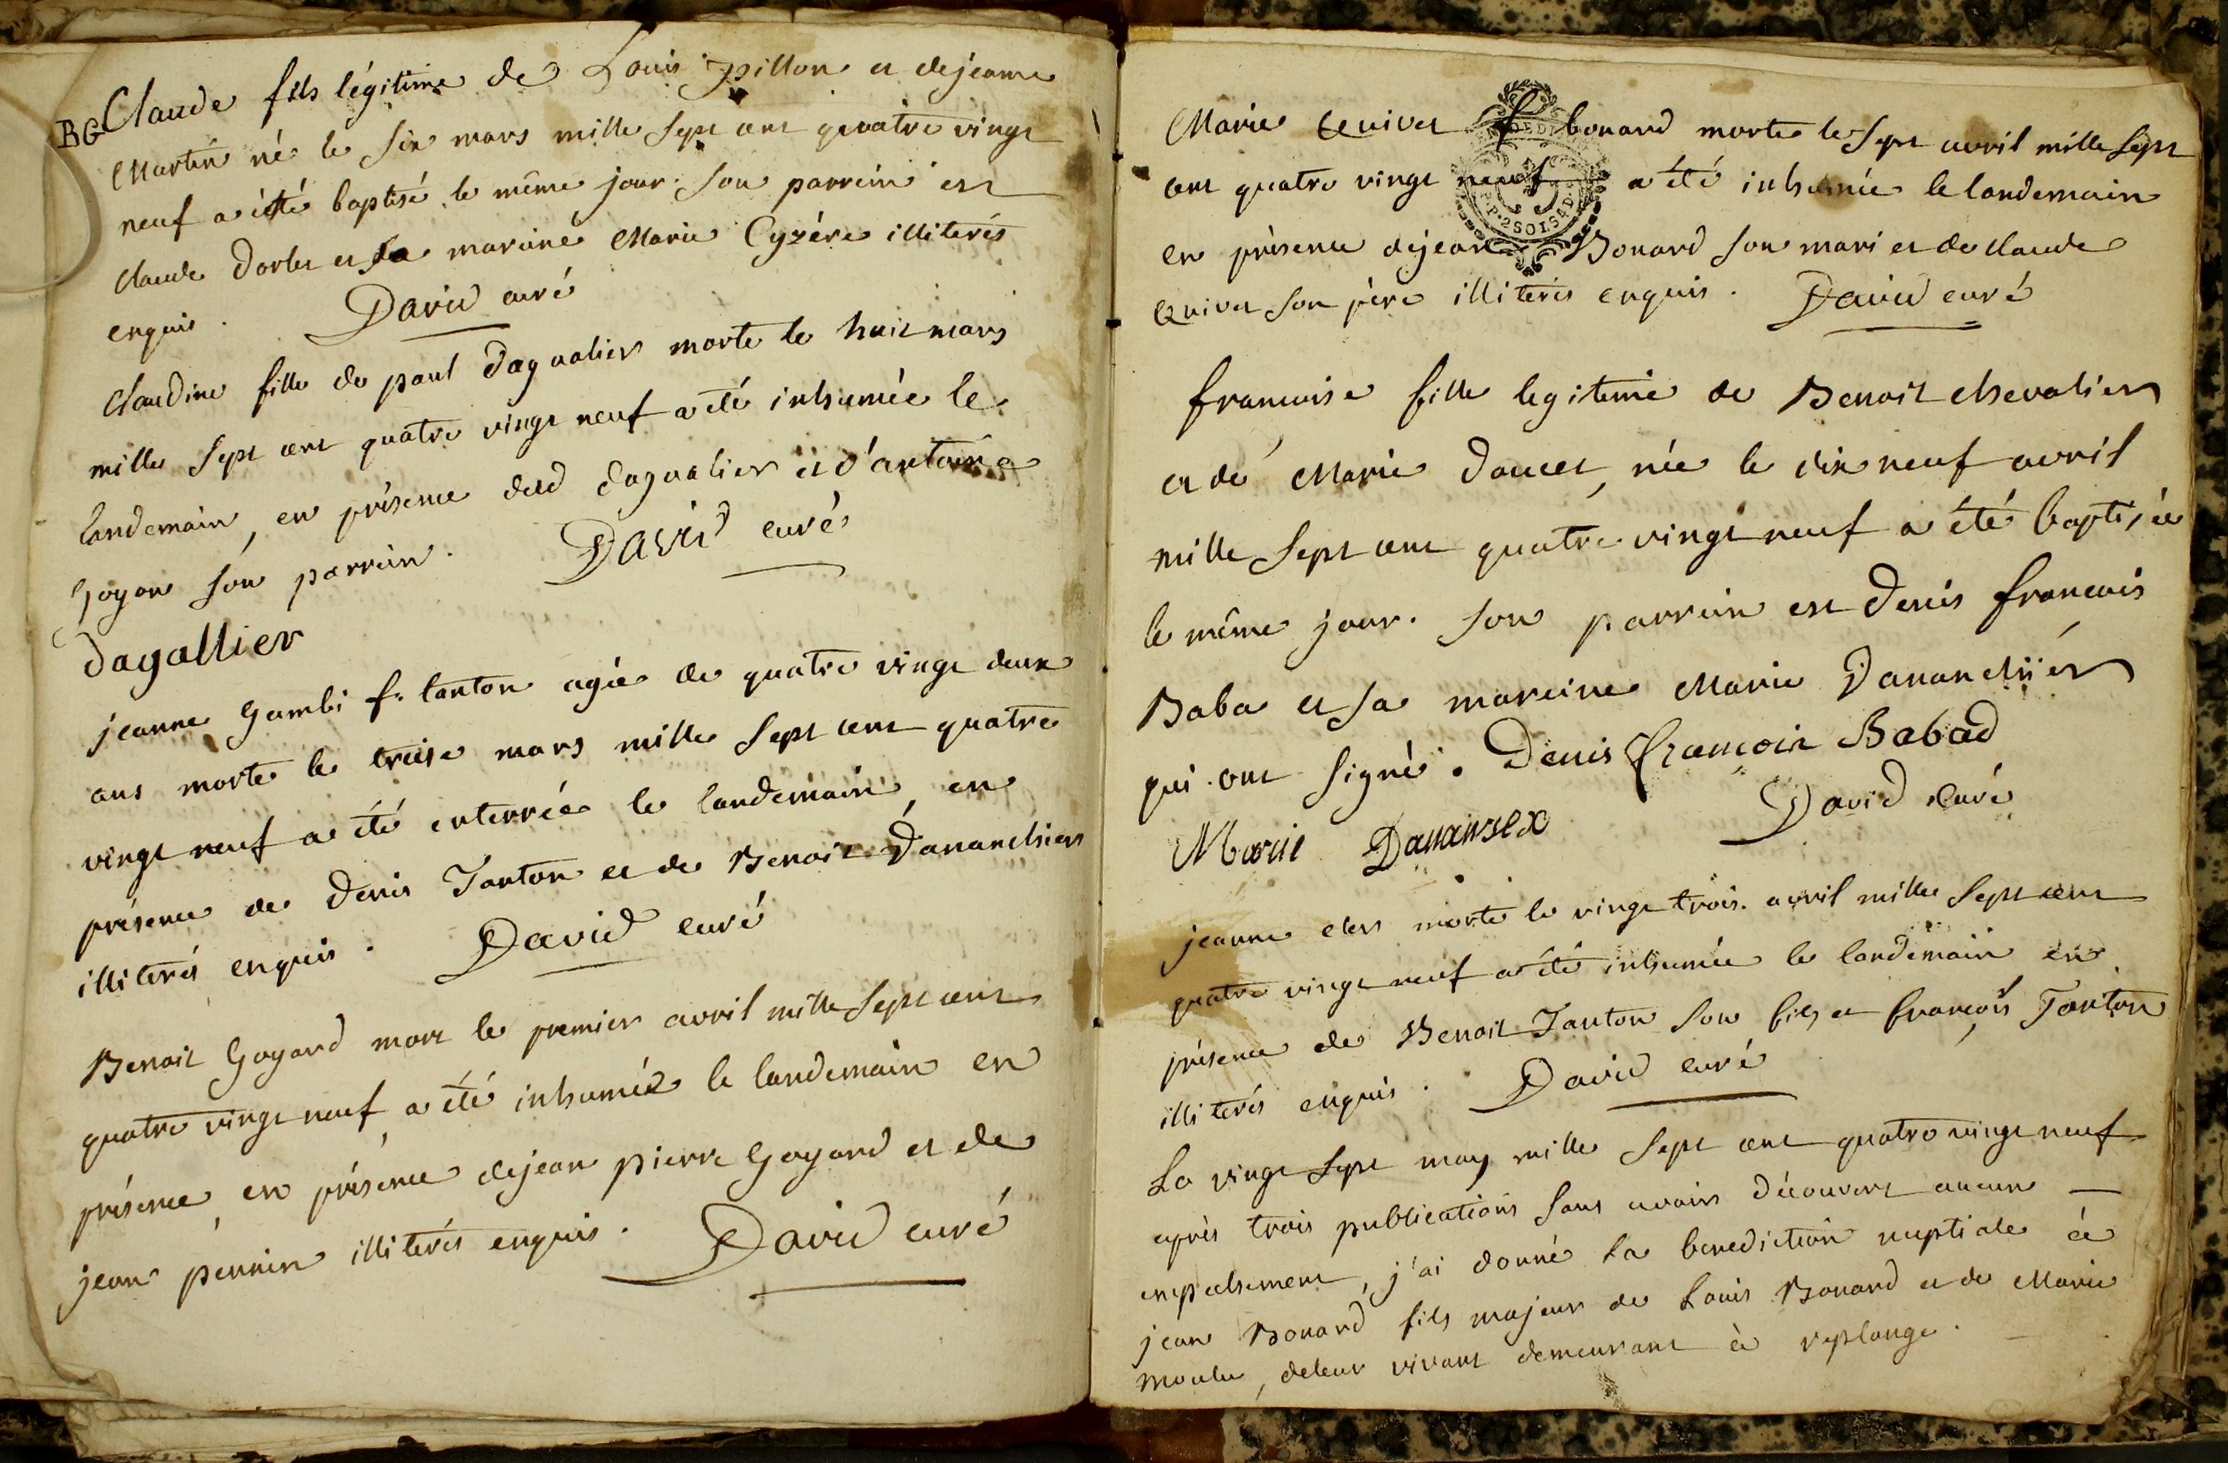 BG
Claude fils légitime de Louis pillon et de jeanne
Martin né le six mars mille sept cent quatre vingt
neuf a été baptisé le même jour. son parrein est
claude dorlet et sa mareine Marie Cyzére illiterés
enquis. David curé
Claudine fille de paul dagualier morte le huit mars
mille sept cent quatre vingt neuf a été inhumée le
landemain, en présence dud dagualier et d'antoine
Goyon son parrein. David curé
dagallier
jeanne Gambi f. tanton agée de quatre vingt deux
ans morte le treise mars mille sept cent quatre
vingt neuf a été enterrée le landemain, en
présence de denis Tanton et de Benoit Dananchier
illiterés enquis. David curé
Benoit Goyard mort le premier avril mille sept cent
quatre vingt neuf a été inhumé le landemain en
présence, en présence de jean pierre Goyard et de
jean perrin illiterés enquis. David curé
Marie f bonard morte le sept avril mille sept
cent quatre vingt neuf a été inhumée le landemain
en présence de jean Bonard son mari et de claude
son père illiterés enquis. David curé
2 SOLS 4 D
francoise fille legitime de Benoit chevalier
et de Marie doucet, née le dix neuf avril
mille sept cent quatre vingt neuf a été baptisée
le même jour. son parrein est denis francois
Baba et sa mareine Marie Dananchier
qui ont signé. Denis françois Babad
Marie Dananxex David curé
jeanne morte le vingt trois avril mille sept cent
quatre vingt neuf a été inhumée le landemain en
présence de Benoit Tanton son fils et françois Tanton
illiterés enquis. David curé
Le vingt sept may mille sept cent quatre vingt neuf
après trois publications sans avoir découvert aucun
empechement, j'ai donné la benediction nuptiale à
jean Bonard fils majeur de Louis Bonard et de Marie
, de leur vivant demeurant à replonge.